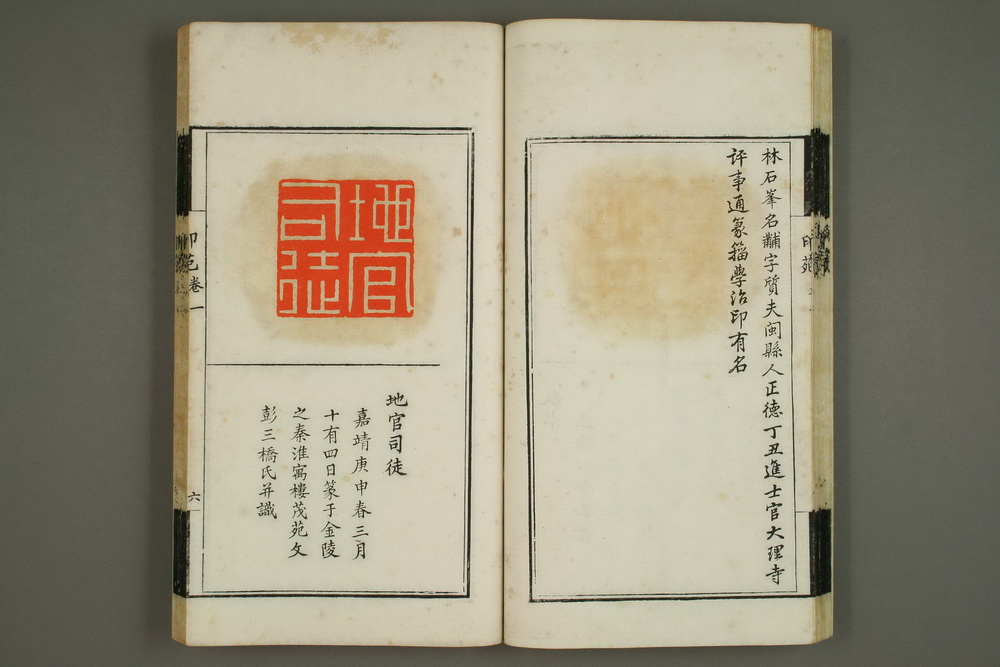 林石峯名黼字質夫閩縣人正德丁丑進士官大理寺
評事通篆籀學治印有名
地官
司徒
地官司徒
嘉靖庚申春三月
十有四日篆于金陵
之秦淮寓樓茂苑文
彭三橋氏并識
印苑卷一
六
印苑